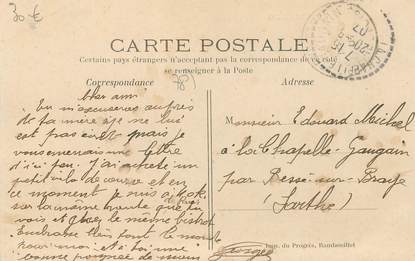 30 €
CARTE POSTALE
Certains pays étrangers n'acceptent pas la correspondance de ce côté
se renseigner à la Poste
Correspondance
Adresse
Cher ami
auprès
de ta mère je ne lui
est pas mais je
vous une lettre
d'ici peu. J'ai acheté un
petit vélo de course et en
ce moment je suis à
de Paris
sur la même route que tu
vois et chez le même bistrot
Embrasse bien tout le monde
pour moi et à toi une
bonne poignée de main
Georges
Monsieur Edouard Michel
à la Chapelle-Gaugain
par Bessé-sur-Braye
(Sarthe)
Imp. du Progrès, Rambouillet
LA CHAPELLE